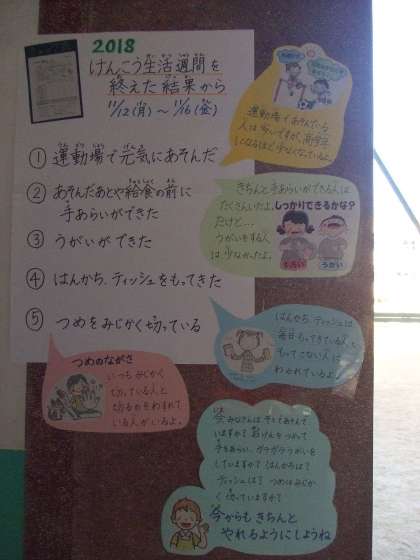 2018
けんこう生活週間を
終えた結果から
11/12(月)～11/16(金)
① 運動場で元気にあそんだ
② あそんだあとや給食の前に
手あらいができた
③ うがいができた
④ はんかち、ティッシュをもってきた
⑤ つめをみじかく切っている
運動場であそんでいる
人は多いですが、高学年
になるほど少なくなっているよ。
きちんと手あらいができる人は
たくさんいたよ。しっかりできるかな？
だけど…
うがいをする人
は少なかったよ。
手あらい
うがい
はんかち、ティッシュは
毎日もってきている人と
もってこない人に
わかれているよ。
つめのながさ
いつもみじかく
切っている人と
切るのをわすれて
いる人がいるよ。
みなさんは そとであそんで
いますか？ 石けんをつかって
手をあらい、ガラガラうがいを
していますか？ はんかちは？
ティッシュは？ つめはみじか
く切っていますか？
今からも きちんと
やれるようにしようね